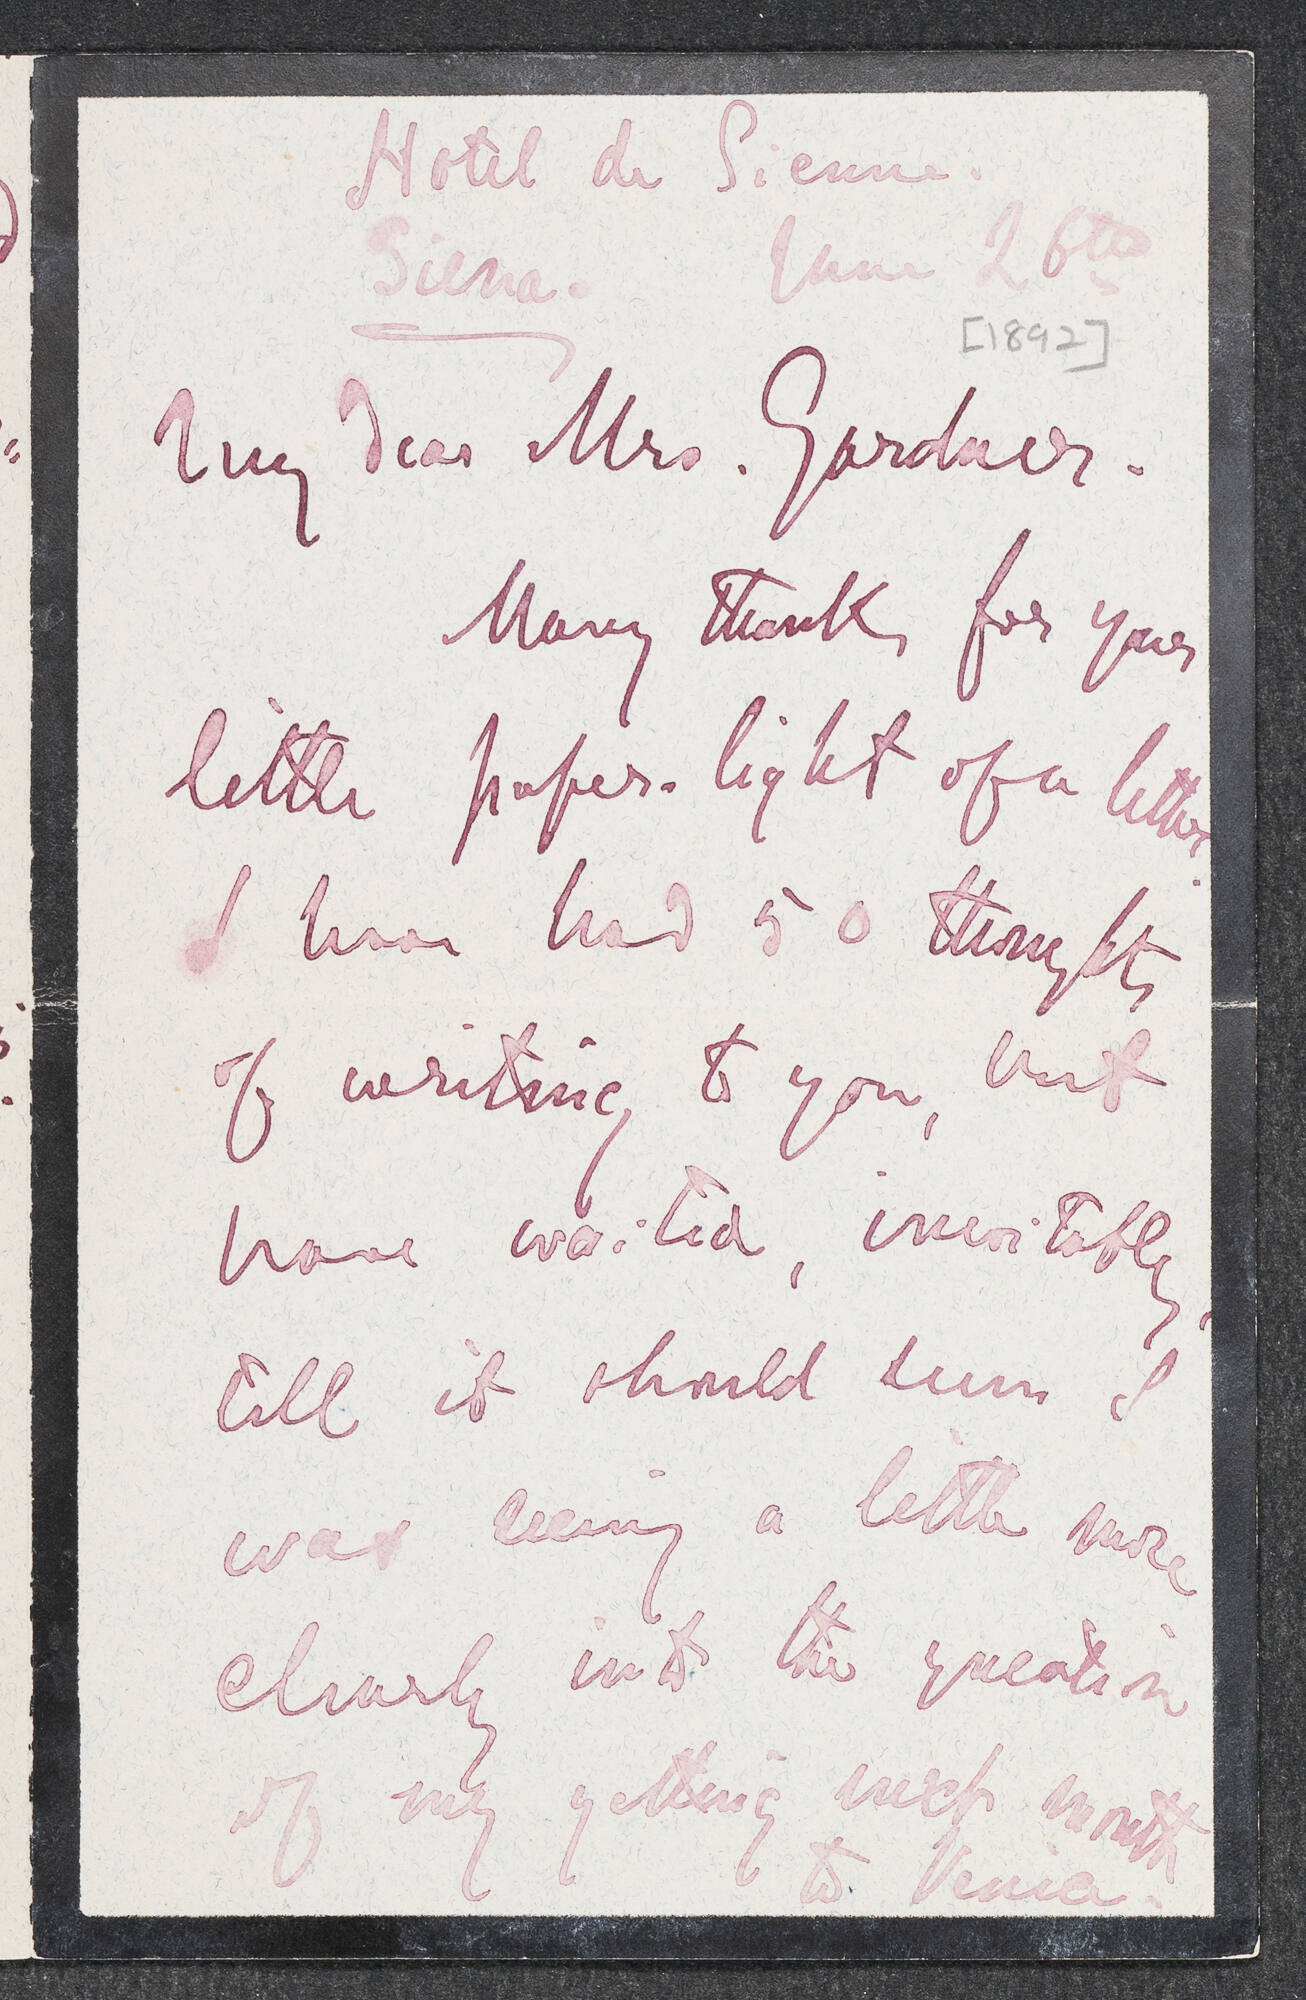 Hotel de Sienne.
Siena. June 26th
[1892]
My dear Mrs. Gardner.
Many thanks for your
little paper-light of a letter.
I have had 50 thoughts
of writing to you, but
have waited, inevitably,
till it should seem I
was seeing a little more
clearly into the question
of my getting next month
to Venice.